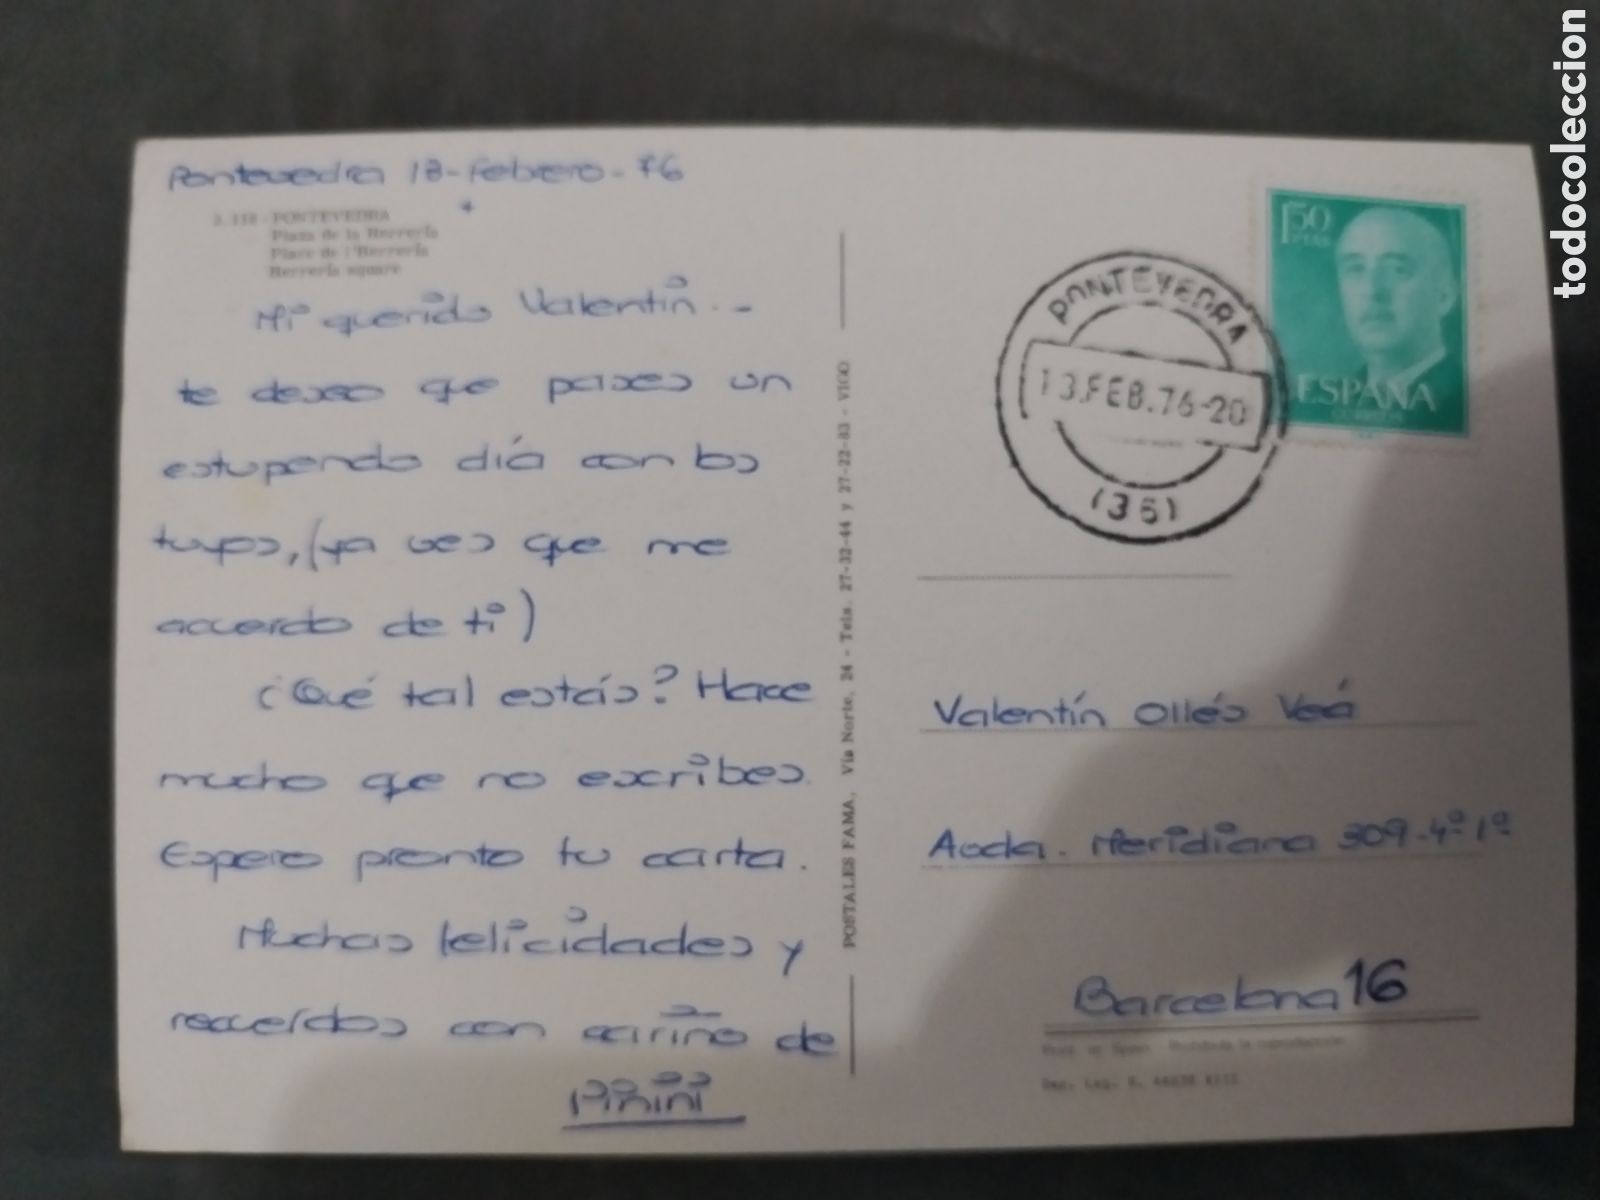 Pontevedra 13-febrero-76
PONTEVEDRA
Plaza de la Herrería
Place de l'Herrería
Herrería square
Mi querido Valentín..-
te deseo que pases un
estupendo día con los
tuyos, (ya ves que me
acuerdo de ti)
¿Qué tal estás? Hace
mucho que no escribes.
Espero pronto tu carta.
Muchas felicidades y
recuerdos con cariño de
POSTALES FAMA, Vía Norte, 24 - Tels. 27-32-44 y 27-22-83 - VIGO
PONTEVEDRA
13.FEB.76-20
(36)
1,50
PTAS
ESPAÑA
CORREOS
Valentín Ollés Veá
Avda. Meridiana 309-4º-1º
Barcelona 16
todocoleccion